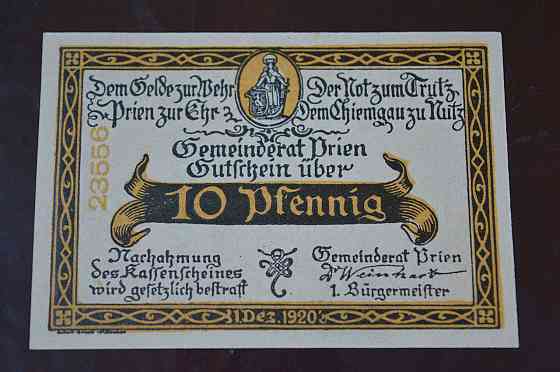 Dem Gelde zur Wehr
Der Not zum Trutz
Prien zur Ehr
Dem Chiemgau zu Nutz
23556
Gemeinderat Prien
Gutschein über
10 Pfennig
Nachahmung
des Kassenscheines
wird gesetzlich bestraft
Gemeinderat Prien
Dr Weinhart
1. Bürgermeister
1. Dez. 1920